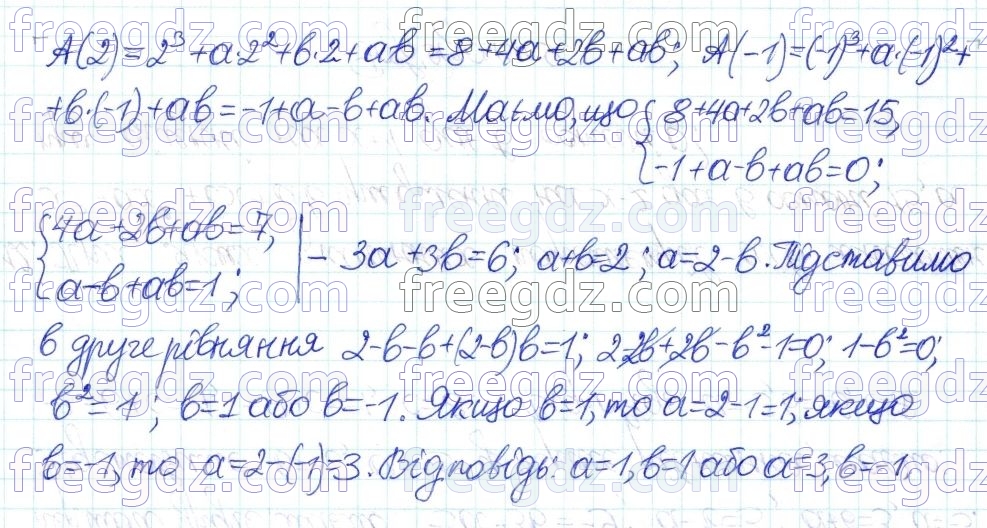 A(2)=2³+a·2²+b·2+ab=8+4a+2b+ab; A(-1)=(-1)³+a·(-1)²+
+b·(-1)+ab=-1+a-b+ab. Маємо, що { 8+4a+2b+ab=15,
{ -1+a-b+ab=0;
{ 4a+2b+ab=7, | - 3a+3b=6; a+b=2; a=2-b. Підставимо
{ a-b+ab=1;
в друге рівняння 2-b-b+(2-b)b=1; 2-2b+2b-b²-1=0; 1-b²=0;
b²=1; b=1 або b=-1. Якщо b=1, то a=2-1=1; якщо
b=-1, то a=2-(-1)=3. Відповідь: a=1, b=1 або a=3, b=-1.
freegdz.com